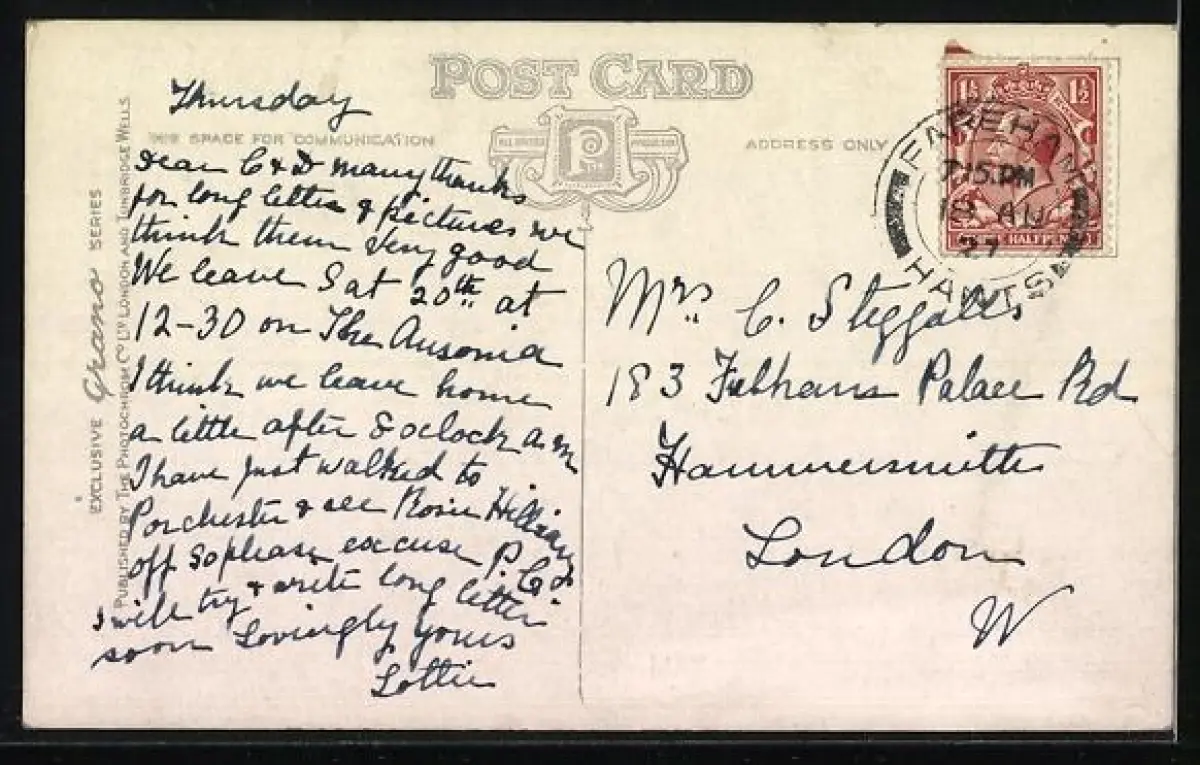 POST CARD
THIS SPACE FOR COMMUNICATION
ADDRESS ONLY
EXCLUSIVE Grano SERIES
PUBLISHED BY THE PHOTOCHROM CO. LTD. LONDON AND TUNBRIDGE WELLS.
Thursday
Dear C & D many thanks
for long letter & pictures we
think them very good
We leave Sat 20th at
12-30 on The Ausonia
I think we leave home
a little after 8 oclock a m
I have just walked to
Porchester & see Rosie
off so please excuse P. C. &
I will try & write long letter
soon Lovingly yours
Lottie
1½ 1½
HALFPENNY
FAREHAM
7.15 PM
AU
27
HANTS
Mrs C. Steggalls
183 Fulhams Palace Rd
Hammersmith
London
W